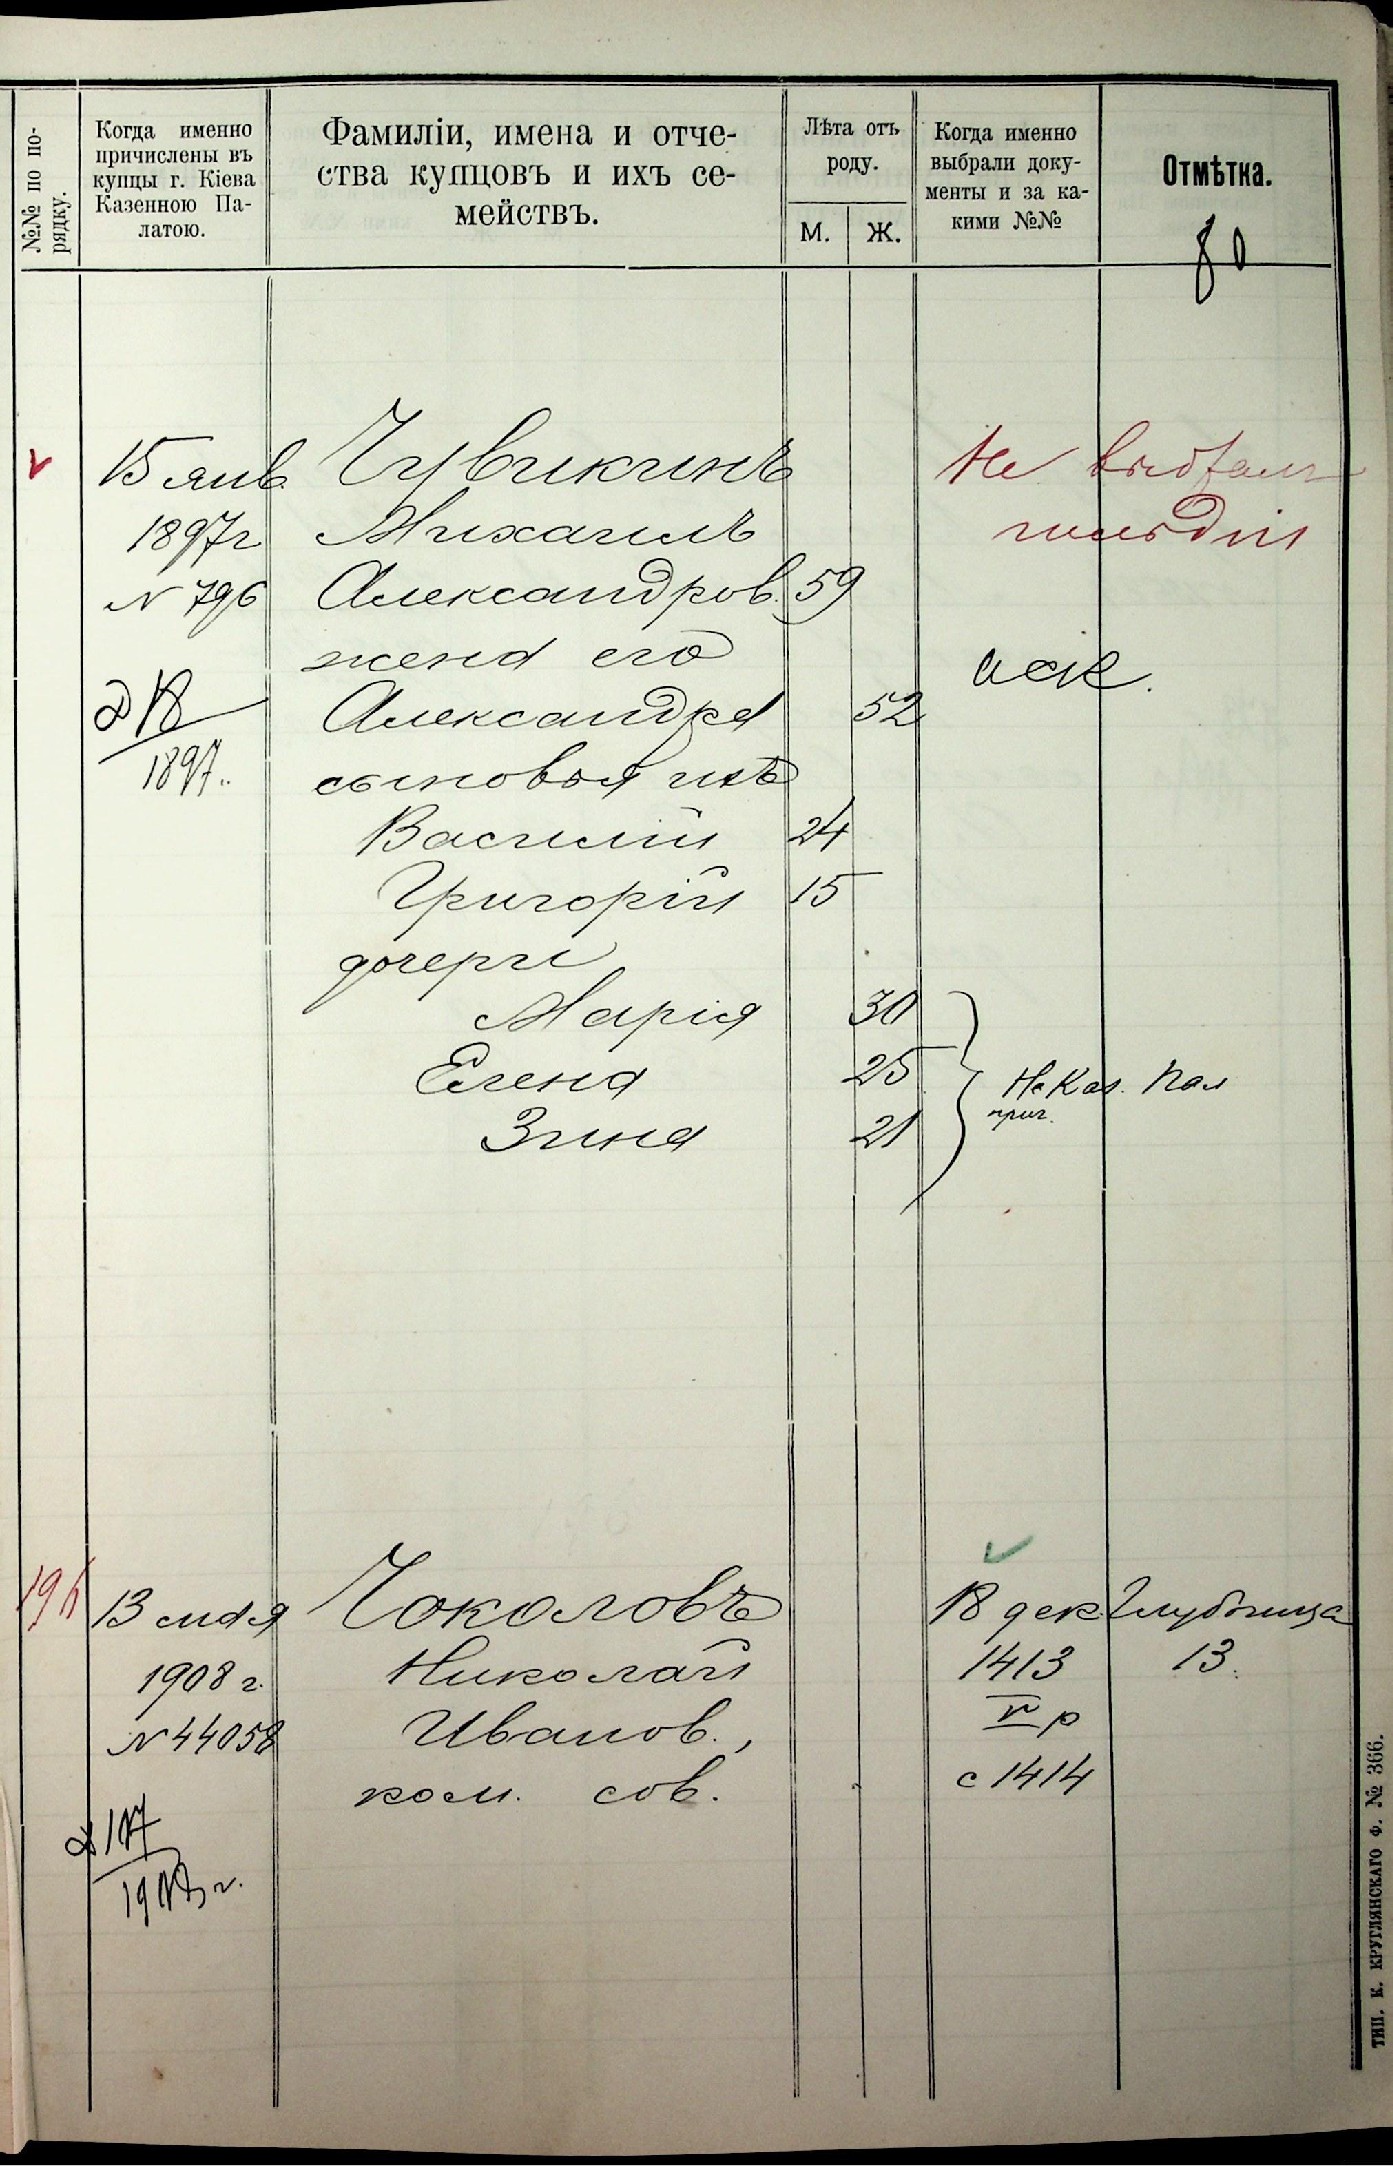 №№ по по-
рядку.
Когда именно
причислены въ
купцы г. Кіева
Казенною Па-
латою.
Фамиліи, имена и отче-
ства купцовъ и ихъ се-
мействъ.
Лѣта отъ
роду.
М.
Ж.
Когда именно
выбрали доку-
менты и за ка-
кими №№
Отмѣтка.
80
15 янв. Чувикинъ Не выбралъ
1897 г Михаилъ
N 796 Александров. 59
жена его
иск.
Д 18 Александра 52
1897
сыновья ихъ
Василій 24
Григорій 15
дочери
Марія 30
Елена 25
Не Каз. Пал
прич.
Зина 21
196 13 мая Чоколовъ 18 дек Глубочица
1908 г. Николай 1413 13.
N 44058 Иванов., V р
ком. сов. с 1414
Д 117
1908 г.
ТИП. К. КРУГЛЯНСКАГО Ф. № 366.